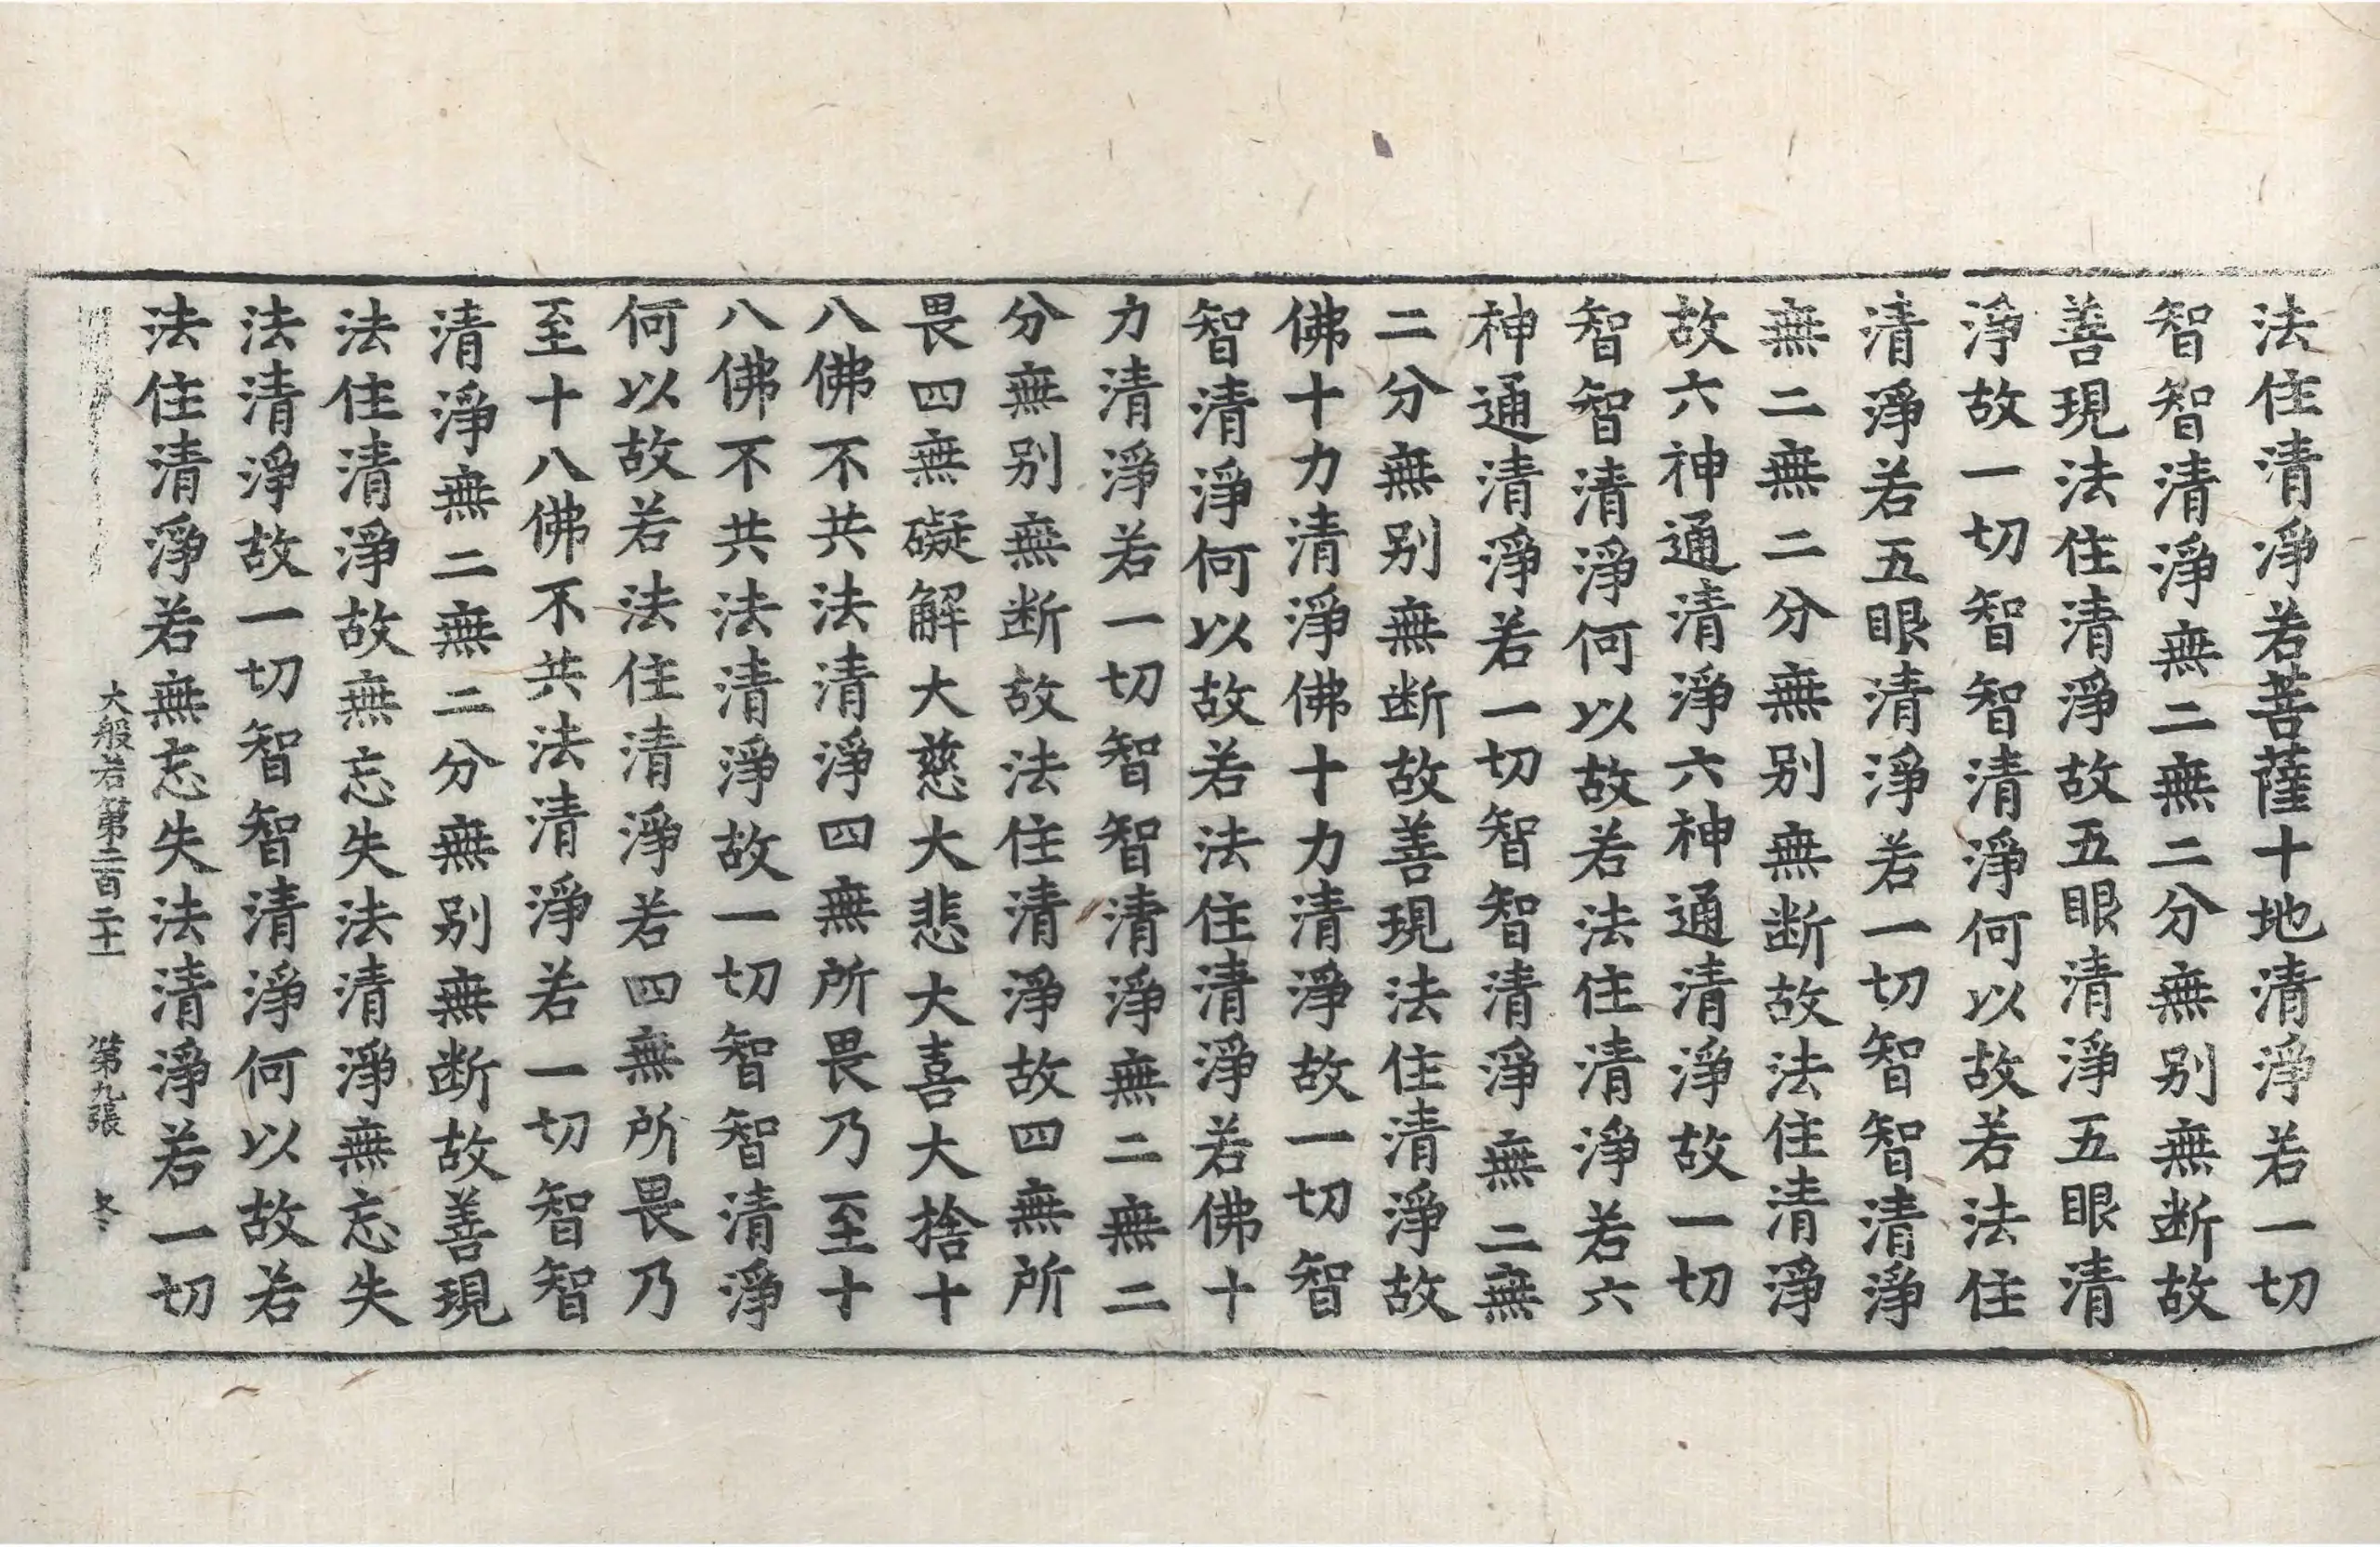 法住清淨若菩薩十地清淨若一切
智智清淨無二無二分無别無断故
善現法住清淨故五眼清淨五眼清
淨故一切智智清淨何以故若法住
清淨若五眼清淨若一切智智清淨
無二無二分無别無断故法住清淨
故六神通清淨六神通清淨故一切
智智清淨何以故若法住清淨若六
神通清淨若一切智智清淨無二無
二分無别無断故善現法住清淨故
佛十力清淨佛十力清淨故一切智
智清淨何以故若法住清淨若佛十
力清淨若一切智智清淨無二無二
分無别無断故法住清淨故四無所
畏四無礙解大慈大悲大喜大捨十
八佛不共法清淨四無所畏乃至十
八佛不共法清淨故一切智智清淨
何以故若法住清淨若四無所畏乃
至十八佛不共法清淨若一切智智
清淨無二無二分無别無断故善現
法住清淨故無忘失法清淨無忘失
法清淨故一切智智清淨何以故若
法住清淨若無忘失法清淨若一切
大般若第二百二十一 第九張 冬